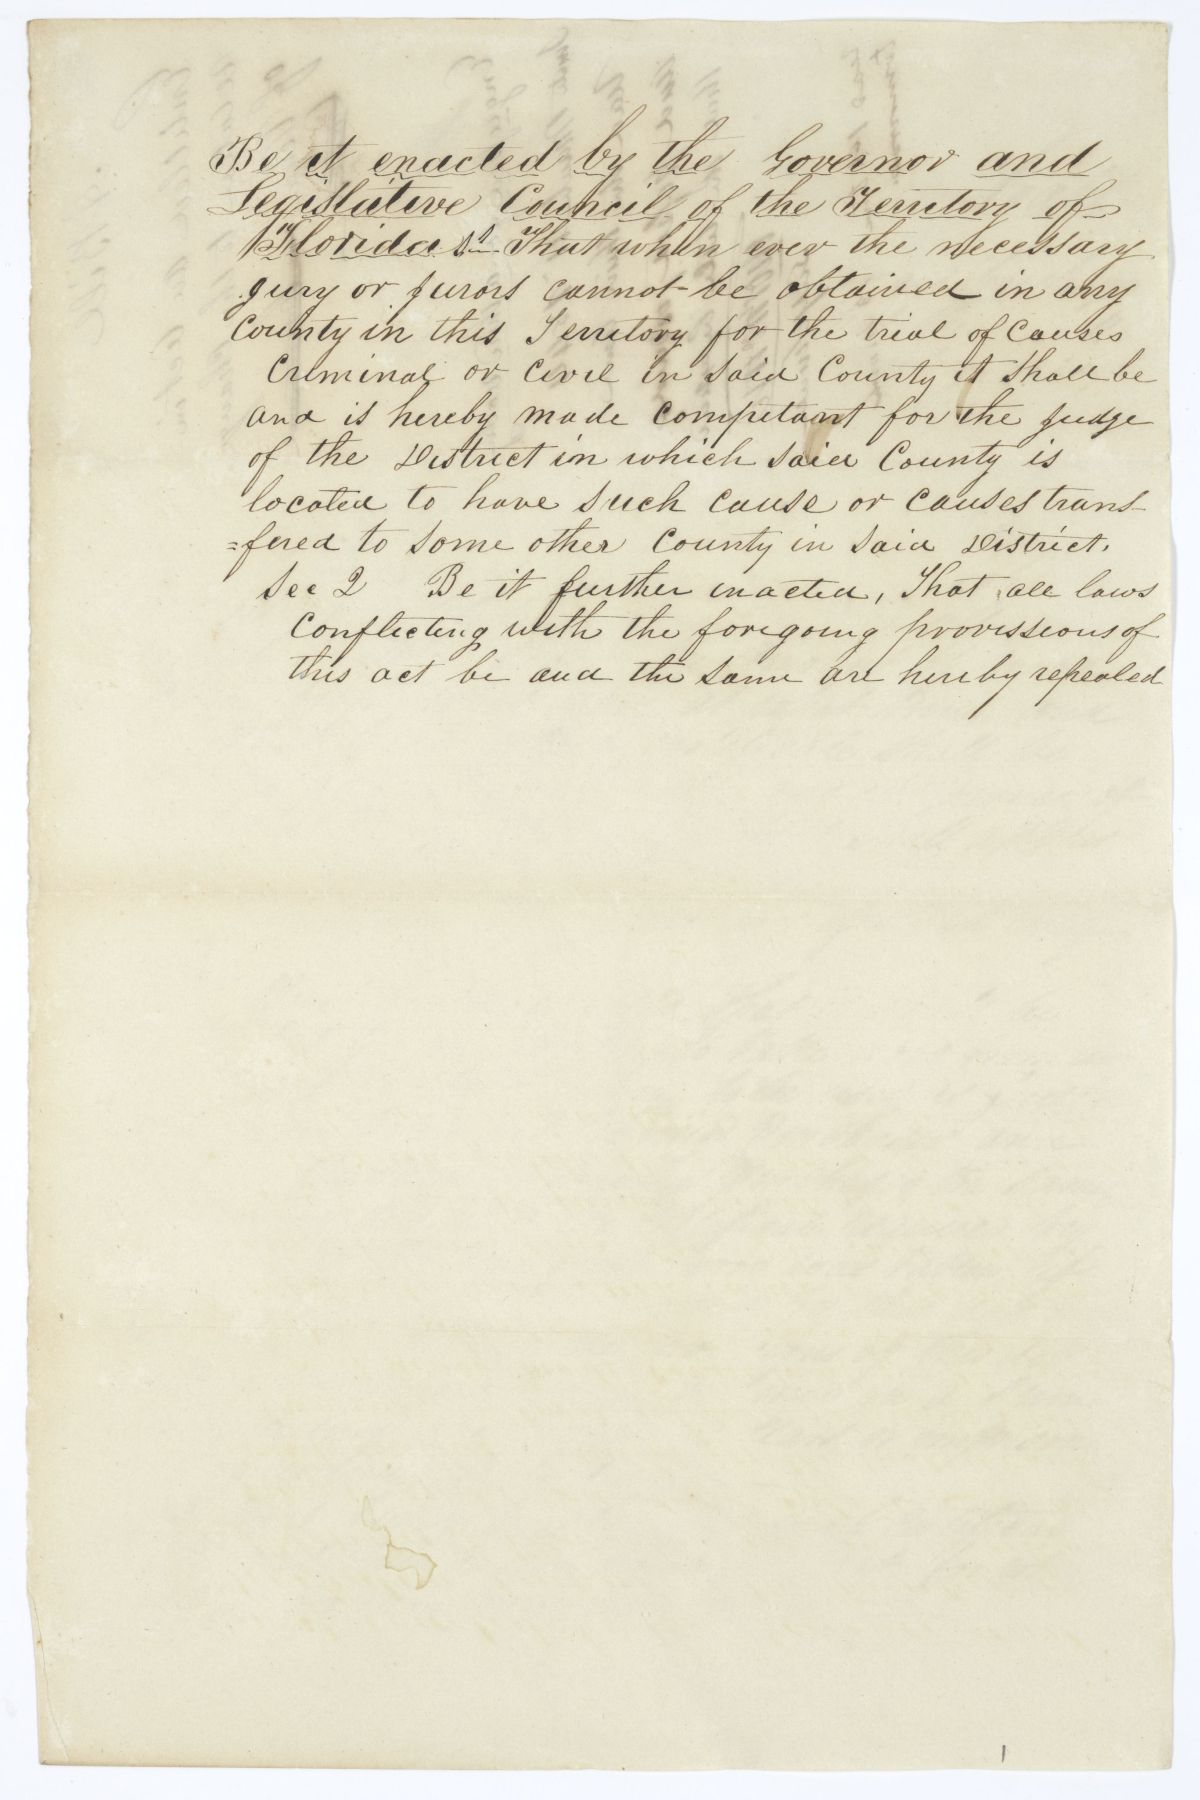 Be it enacted by the Governor and
Legislative Council of the Territory of
Florida 1st That when ever the necessary
jury or jurors cannot be obtained in any
County in this Territory for the trial of Causes
Criminal or Civil in said County it shall be
and is hereby made competant for the judge
of the District in which said County is
located to have such cause or causes trans-
=fered to some other County in said District.
Sec 2 Be it further enacted, That all laws
Conflicting with the foregoing provissions of
this act be and the same are hereby repealed
1